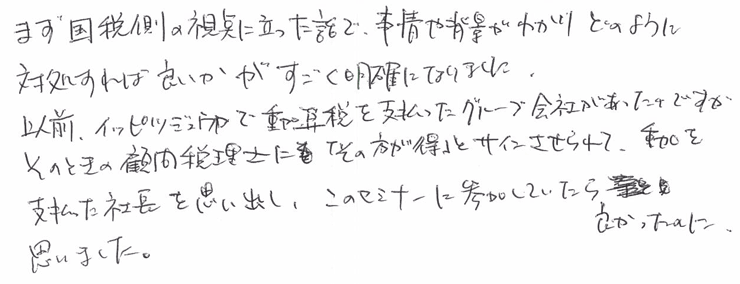 まず国税側の視点に立った話で、事情や背景がわかり どのように
対処すれば良いかがすごく明確になりました。
以前、イッピツシュウウで重加算税を支払ったグループ会社があったのですが
そのときの顧問税理士に「その方が得」とサインさせられて、重加を
支払った社長を思い出し、このセミナーに参加していたら
良かったのに、
思いました。